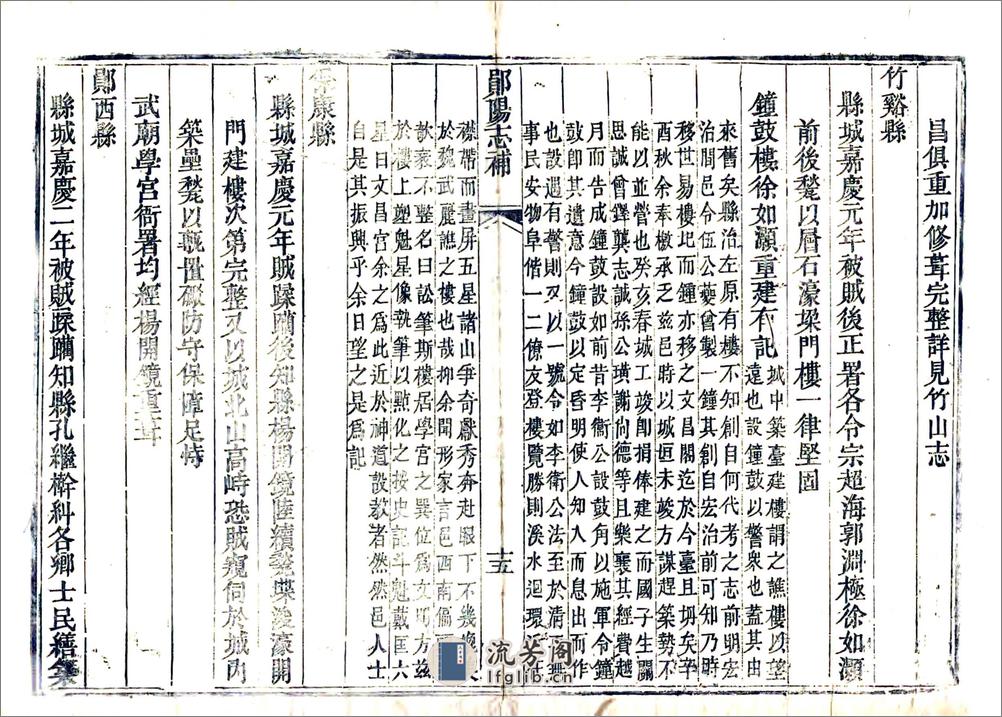 昌俱重加修葺完整詳見竹山志
竹谿縣
縣城嘉慶元年被賊後正署各令宗超海郭淵極徐如灝
前後甃以層石濠堞門樓一律堅固
鐘鼓樓徐如灝重建有記
城中築臺建樓謂之譙樓以望
遠也設鐘鼓以警衆也蓋其由
來舊矣縣治左原有樓不知創自何代考之志前明宏
治間邑令伍公夔曾製一鐘其創自宏治前可知乃時
移世易樓圮而鐘亦移之文昌閣迄於今臺且坍矣辛
酉秋余奉檄承乏兹邑時以城垣未竣方謀趕築勢不
能以並營也癸亥春城工竣即捐俸建之而國子生嗣
思誠曾鐸龔志誠孫公璜謝尚德等且樂襄其經費越
月而告成鐘鼓設如前昔李衞公設鼓角以施軍令鐘
鼓卽其遺意今鐘鼓以定昏明使人知入而息出而作
也設遇有警則又以一號令如李衞公法至於清
事民安物阜偕一二僚友登樓覽勝則溪水迴環
襟帶而畫屏五星諸山爭奇獻秀奔赴眼下不幾
於魏武麗譙之樓也哉抑余聞形家言邑西南偏
欹衺不整名曰訟筆斯樓居學宮之巽位爲文明方兹
於樓上塑魁星像執筆以點化之按史記斗魁戴匡六
星曰文昌宮余之爲此近於神道設教者然然邑人士
自是其振興乎余日望之是爲記
保康縣
縣城嘉慶元年賊蹂躪後知縣楊開鏡陸續甃堞浚濠開
門建樓次第完整又以城北山高峙恐賊窺伺於城內
築壘甃以甎置礮防守保障足恃
武廟學宮衙署均經楊開鏡重葺
鄖西縣
縣城嘉慶二年被賊蹂躪知縣孔繼檊糾各鄉士民繕築
鄖陽志補
十五
流芳阁
lfglib.cn